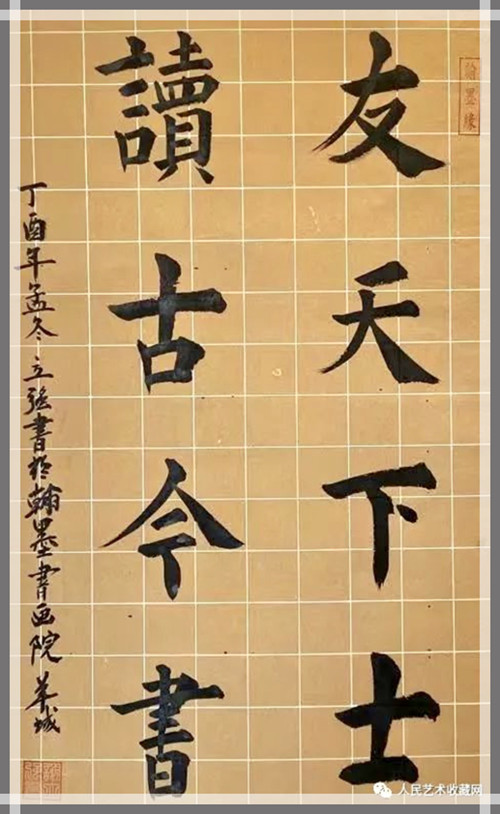 翰墨缘
友天下士
讀古今书
丁酉年孟冬立強書於翰墨書画院羊城
人民艺术收藏网